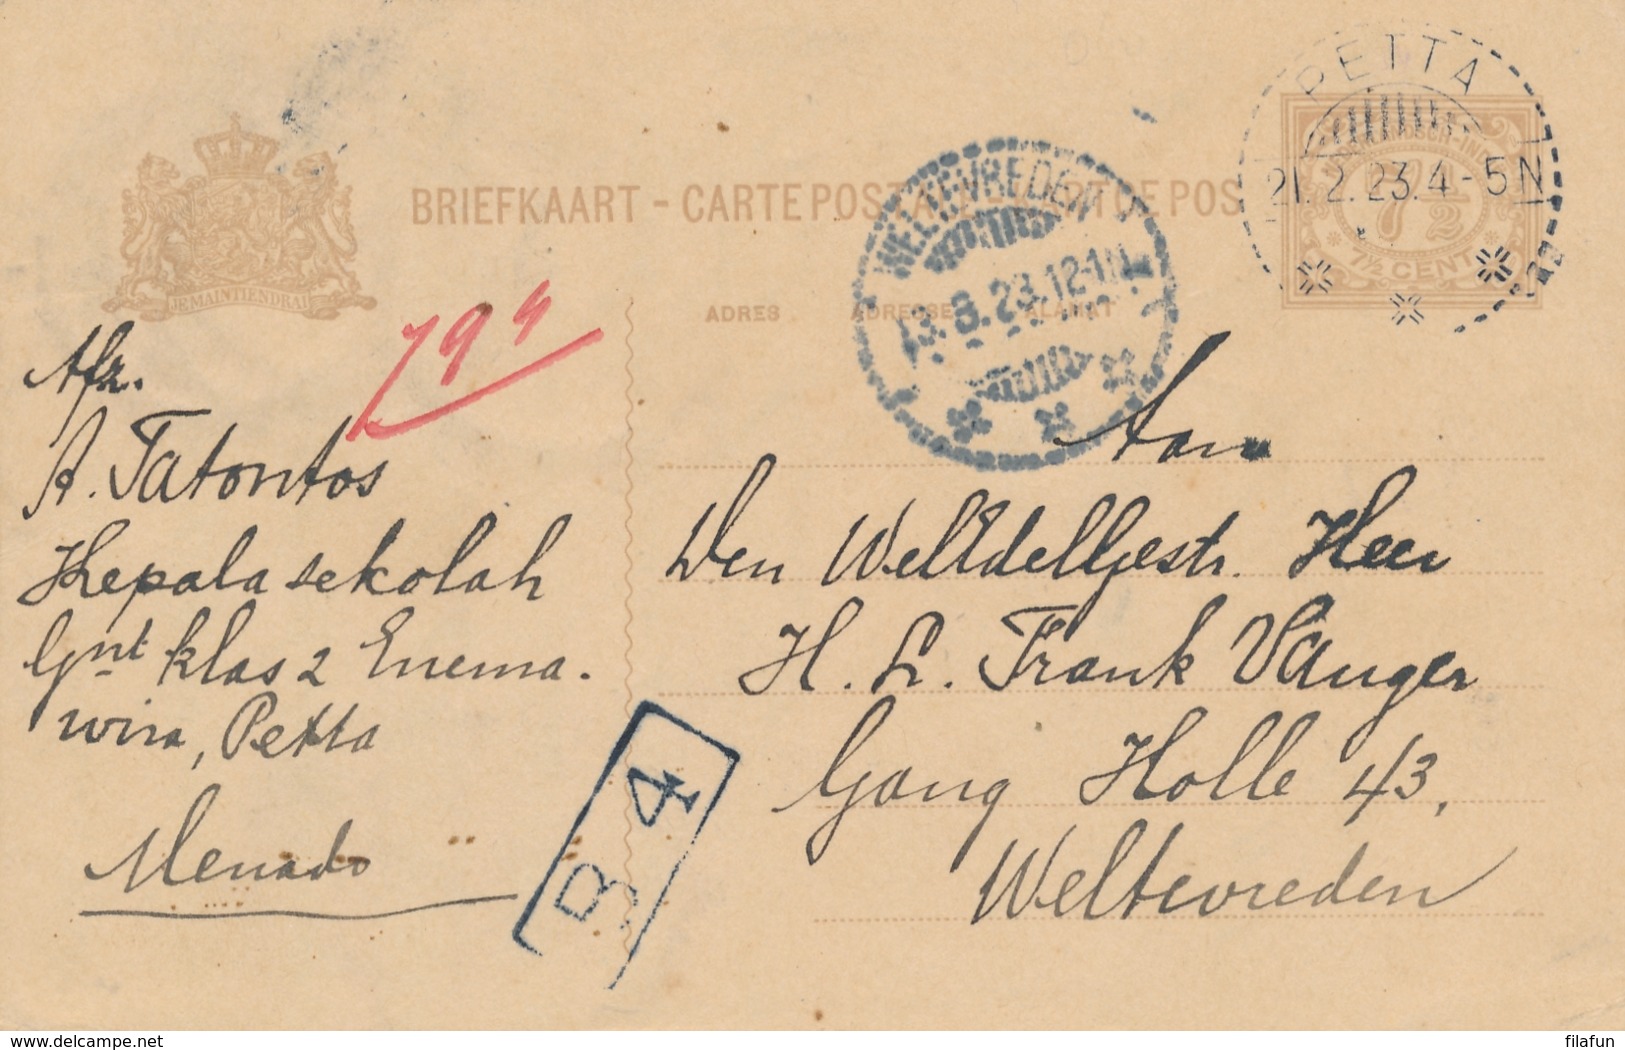 BRIEFKAART - CARTE POSTALE
PETTA
21.2.23.4-5N
7½
7½ CENT
WELTEVREDEN
13.3.23.12-1N
JE MAINTIENDRAI
ADRES ADRESSE ALAMAT
794
Afz.
A. Tatontos
Kepala sekolah
Gnt klas 2 Enema.
wira, Petta
Menado
B 4
Aan
Den WelEdelGestr. Heer
H. L. Frank Vanger
Gang Holle 43,
Weltevreden
www.delcampe.net
filafun